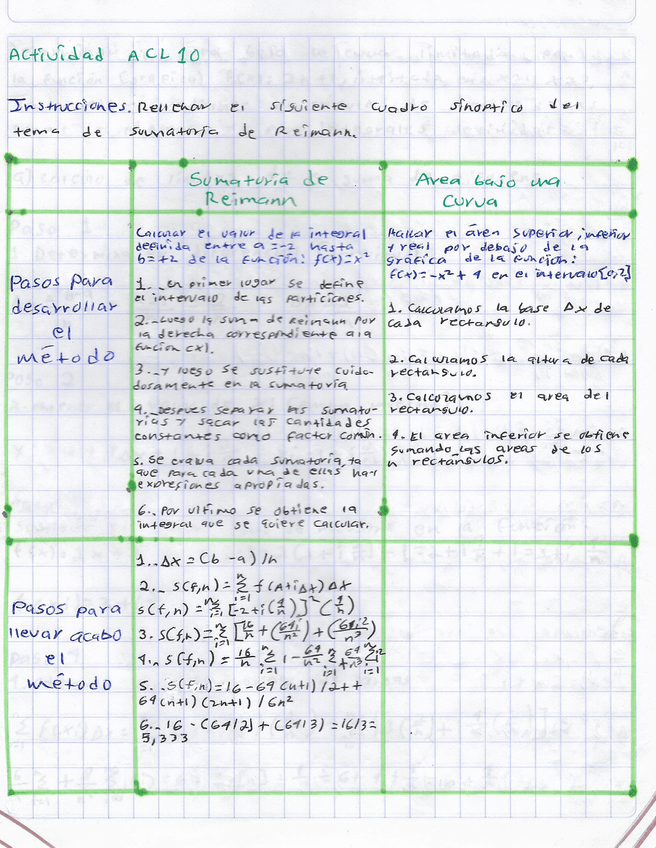 Actividad ACL 10
Instrucciones. Rellenar el siguiente cuadro sinoptico del
tema de sumatoria de Reimann.
Sumatoria de
Reimann
Area bajo una
curva
Pasos para
desarrollar
el
método
Calcular el valor de la integral
definida entre a=-2 hasta
b=+2 de la función: f(x)=x²
1._ En primer lugar se define
el intervalo de las particiones.
2._Luego la suma de Reimann por
la derecha correspondiente a la
función (x).
3._Y luego se sustituye cuida-
dosamente en la sumatoria
4._Despues separar las sumato-
rias y sacar las cantidades
constantes como factor común.
5. Se evalua cada sumatoria, ta
que para cada una de ellas hay
expresiones apropiadas.
6._ Por ultimo se obtiene la
integral que se quiere calcular.
Hallar el áren superior, inferior
y real por debajo de la
gráfica de la función:
f(x)=-x²+4 en el intervalo [0,2]
1. Calculamos la base Δx de
cada rectangulo.
2. Calculamos la altura de cada
rectangulo.
3. Calculamos el area del
rectangulo.
4. El area inferior se obtiene
sumando las areas de los
n rectángulos.
Pasos para
llevar acabo
el
método
1._ Δx = (b-a)/n
2._ s(f,n) = Σ f(A+iΔx) Δx
s(f,n) = Σ [-2+i(4/n)]² (4/n)
3. s(f,n) = Σ [16/n + (64i/n²) + (64i²/n³)
4._ s(f,n) = 16/n Σ 1 - 64/n² Σ 64/n³ Σ i²
5. .s(f,n) = 16-64(n+1)/2++
64(n+1)(2n+1)/6n²
6._ 16 - (64/2] + (64/3) = 16/3 =
5,333